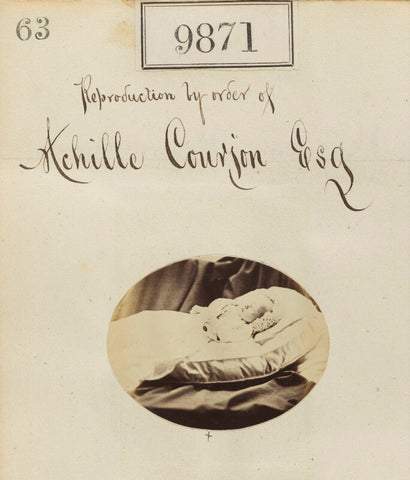 63
9871
Reproduction by order of
Achille Courjon Esq